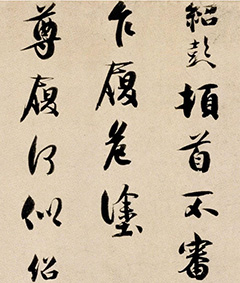 紹彭頓首不審
乍履危塗
尊履何似紹